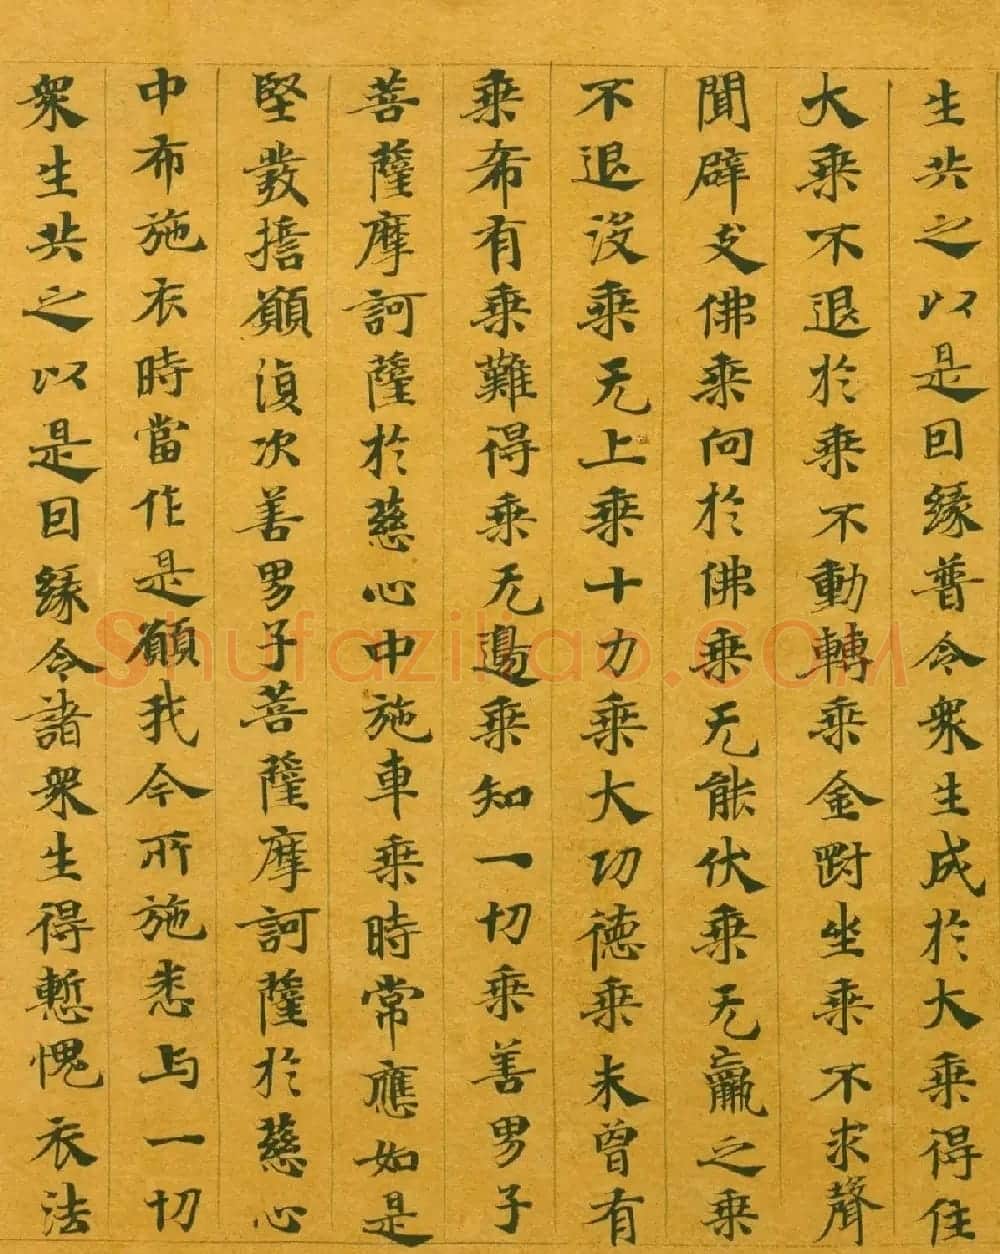 生共之以是囙緣普令衆生成於大乘得住
大乘不退於乘不動轉乘金剛坐乘不求聲
聞辟支佛乘向於佛乘无能伏乘无羸之乘
不退没乘无上乘十力乘大功德乘未曾有
乘希有乘難得乘无邊乘知一切乘善男子
菩薩摩訶薩於慈心中施車乘時常應如是
堅發誓願復次善男子菩薩摩訶薩於慈心
中布施衣時當作是願我今所施悉与一切
衆生共之以是囙緣令諸衆生得慙愧衣法
Shufaziliao.com